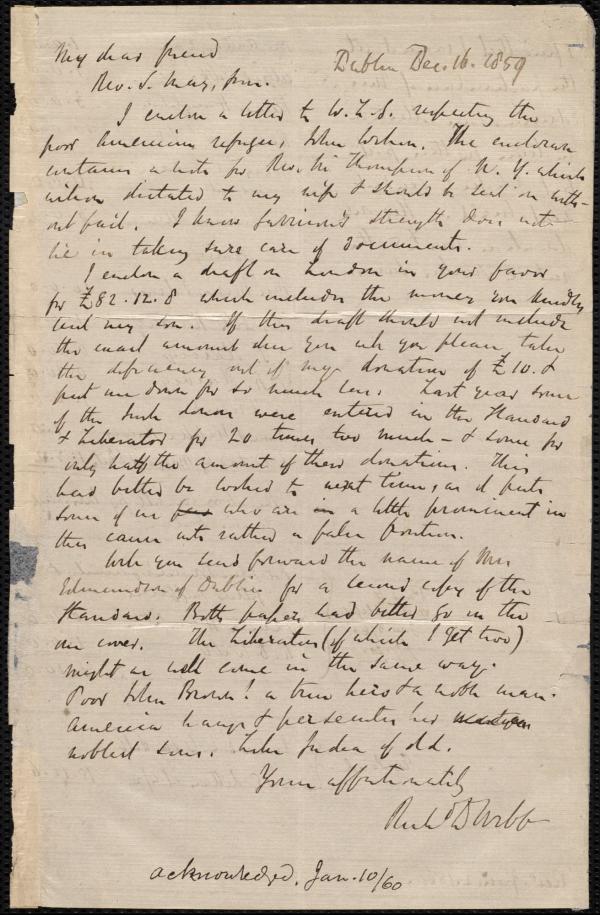 My dear friend
Dublin Dec. 16. 1859
Rev. S. May, Jun.
I enclose a letter to W. L. G. respecting the
poor American refugee, John Wilson. The enclosure
contains a note for Rev. Mr Thompson of N. Y. which
Wilson dictated to my wife & should be sent on with-
out fail. I know Garrison's strength does not
lie in taking sure care of documents.
I enclose a draft on London in your favor
for £82.12.8 which includes the money you kindly
lent my son. If this draft should not include
the exact amount due you will you please take
the deficiency out of my donation of £10. &
put me down for so much less. Last year some
of the Irish donors were entered in the Standard
& Liberator for 20 times too much - & some for
only half the amount of their donations. This
had better be looked to next time, as it puts
some of us who are in a little prominent in
this cause into rather a false position.
Will you send forward the name of Mrs
Edmundson of Dublin for a second copy of the
Standard. Both papers had better go in the
one cover. The Liberators (of which I get two)
might as well come in the same way.
Poor John Brown! a true hero & a noble man.
America hangs & persecutes her
noblest sons. Like Judea of old.
Yours affectionately
Richd D Webb
acknowledged, Jan. 10/60